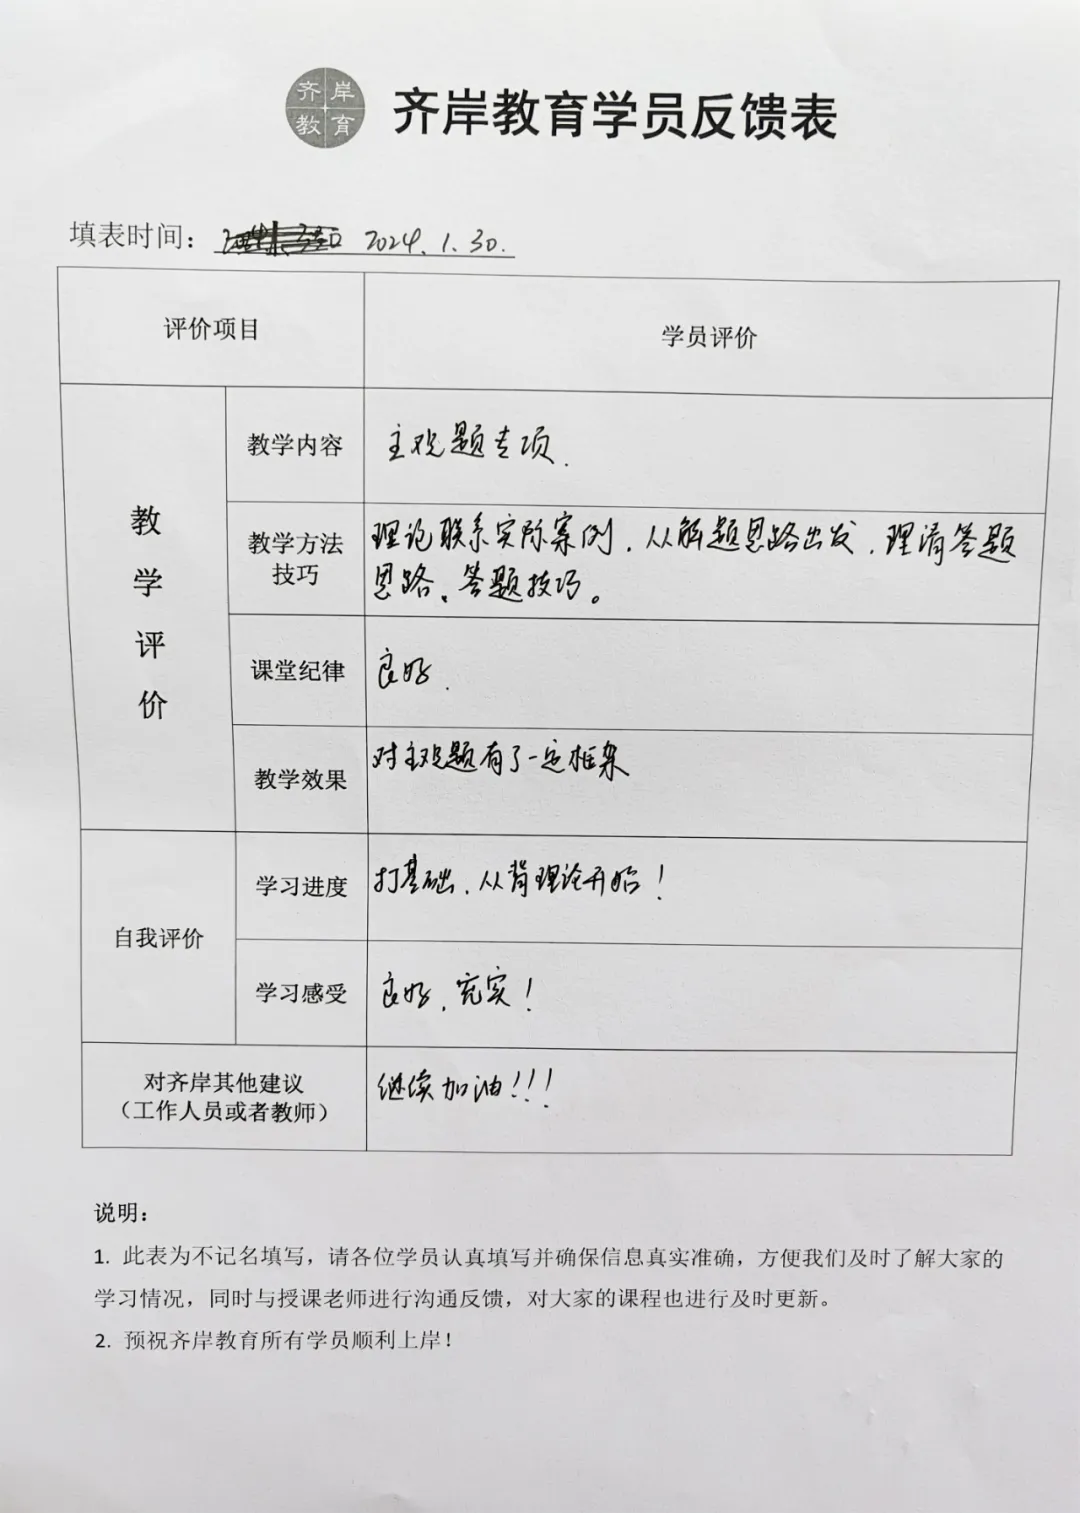 齐岸
教育
齐岸教育学员反馈表
填表时间： 2024.1.30.
评价项目
学员评价
教学评价
教学内容
主观题专项.
教学方法
技巧
理论联系实际案例，从解题思路出发，理清答题
思路、答题技巧。
课堂纪律
良好.
教学效果
对主观题有了一定框架
自我评价
学习进度
打基础，从背理论开始！
学习感受
良好，充实！
对齐岸其他建议
（工作人员或者教师）
继续加油！！！
说明：
1. 此表为不记名填写，请各位学员认真填写并确保信息真实准确，方便我们及时了解大家的
学习情况，同时与授课老师进行沟通反馈，对大家的课程也进行及时更新。
2. 预祝齐岸教育所有学员顺利上岸！